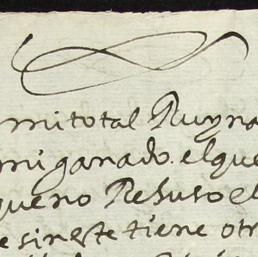 mi total Ruyna
mi ganado. el que
queno Rehuso el
e sineste tiene otr